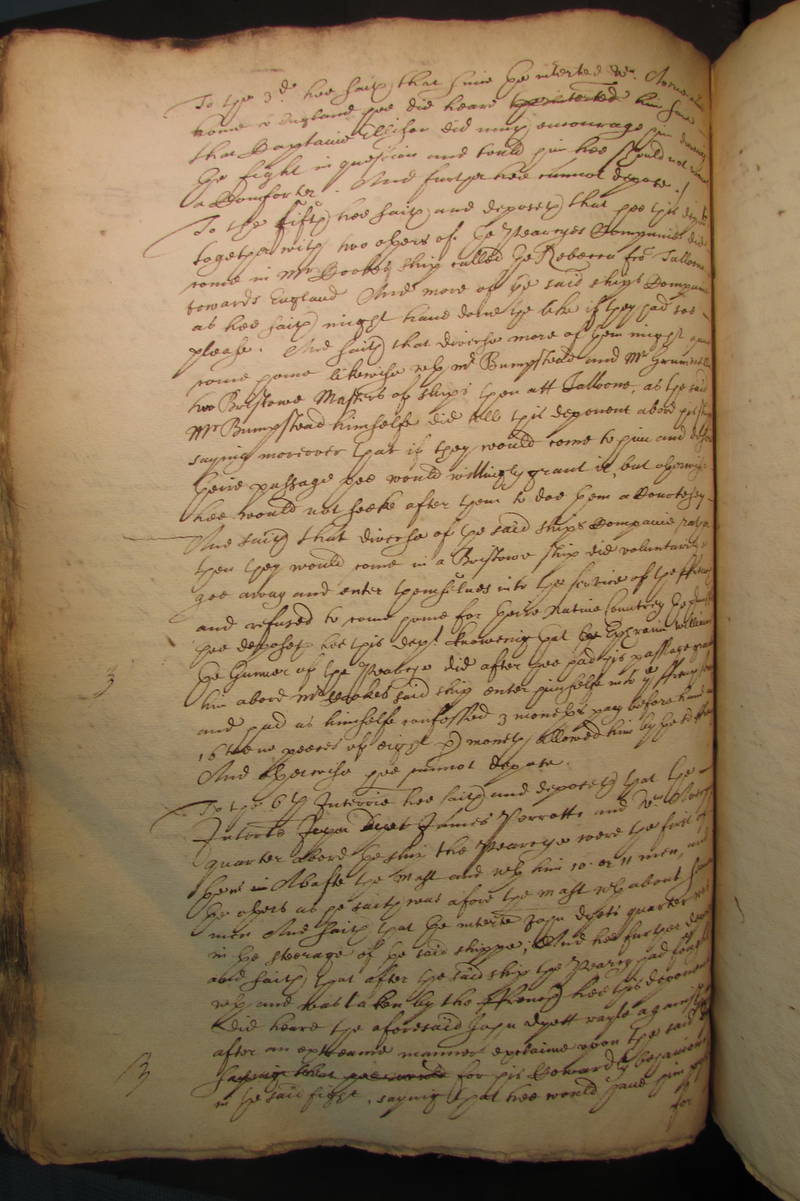 To the 3.d hee saith that since the interted Wm. Norm
come to England hee did heare him saie
that Captaine Ellison did much encourage him during
the fight in question and tould him hee should not want
a Comforter. And further hee cannot depose./
To the fifth hee saith and deposeth that hee this depnt
together with two others of the Pearcyes Companie did
come in Mr Cockes ship called the Rebecca fro Talloone
towards England And more of the said ships Companie
as hee saith might have done the like if they had soe
please. And saith that diverse more of them might have
come home likewise wth Mr Bumpstead and Mr
two Bristowe Masters of ships then att Talloone, as the said
Mr Bumpstead himselfe did tell this deponent abord his ship
saying moreover that if they would come to him and desire
theire passage hee would willingly grant it, but otherwise
hee would not seeke after them to doe them a Courtesey.
And saith that diverse of the said ships Companie rather
then they would come in a Bristowe ship did voluntarily
goe away and enter themselves into the service of the ffrench
and refused to come home for theire native Countrey
hee deposeth hee this dept. knoweing that the Ephraim William
the Gunner of the Pearcye did after hee had his passage
him abord Mr Cockes said ship enter himselfe into ye ffrench
and had as himselfe confessed 3 moneths pay before hand
16 peeces of eight p month allowed him by the ffrench
And otherwise hee cannot depose.
To the 6th Interrie hee saith and deposeth that the
Interted John Diet James Perrott and Wm
quarter abord the ship the Pearcye were the first of
them in Abafte the Mast and wth him 10. or 11 men, and
the others as he saith was afore the mast wth about
men And saith that the interted John Dyets quarter was
in the steerage of the said shippe; And hee further
and saith that after the said ship the Pearcy had fought
wth and was taken by the ffrench hee this deponent
did heare the aforesaid John Dyett rayle against
after an extreame manner exclaime upon the said
saying that hee would for his Cowardly behaviour
in the said fight, saying that hee would have him
for